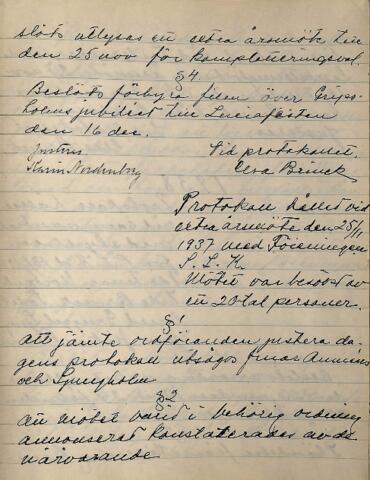 slöts utlysas en extra årsmöte till
den 25 nov för kompletteringsval.
§4.
Beslöts förhyra filmen över Grips-
holmsjubiléet till Luciafesten
den 16 dec.
Justeras
Vid protokollet.
Karin Nordenberg
Elsa Brinck
Protokoll hållet vid
extra årsmöte den 25/11
1937 med Föreningen
S. L. K.
Mötet var besökt av
en 20 tal personer.
§1
Att jämte ordföranden justera da-
gens protokoll utsågos fruar
och Ljungholm
§2
Att mötet varit i behörig ordning
annonserat konstaterades av de
närvarande